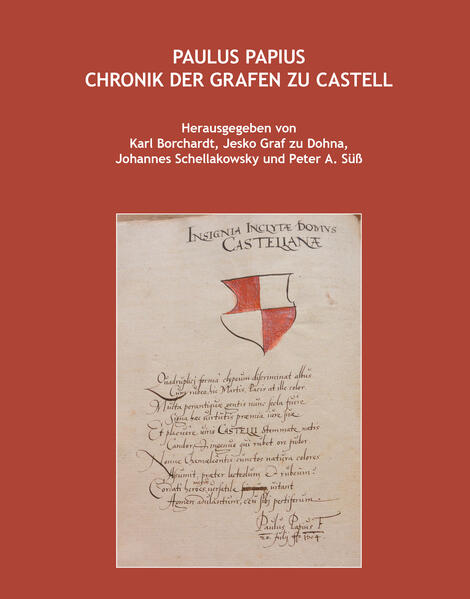 PAULUS PAPIUS
CHRONIK DER GRAFEN ZU CASTELL
Herausgegeben von
Karl Borchardt, Jesko Graf zu Dohna,
Johannes Schellakowsky und Peter A. Süß
INSIGNIA INCLYTÆ DOMVS
CASTELLANÆ
Quadruplici forma clypeum discriminat albus
Cum rubeo, hic Martis, Pacis at ille color.
Multa perantiquæ gentis nunc secla fuere
Signa hæc virtutis præmia iure suæ
Et placuere viris CASTELLI stemmate natis
Candor, et ingenuo qui rubet ore pudor
Nonne Chamæleontis cunctos natura colores
præter luteolum et rubeum:
heroes versatile
Paulus Papius F